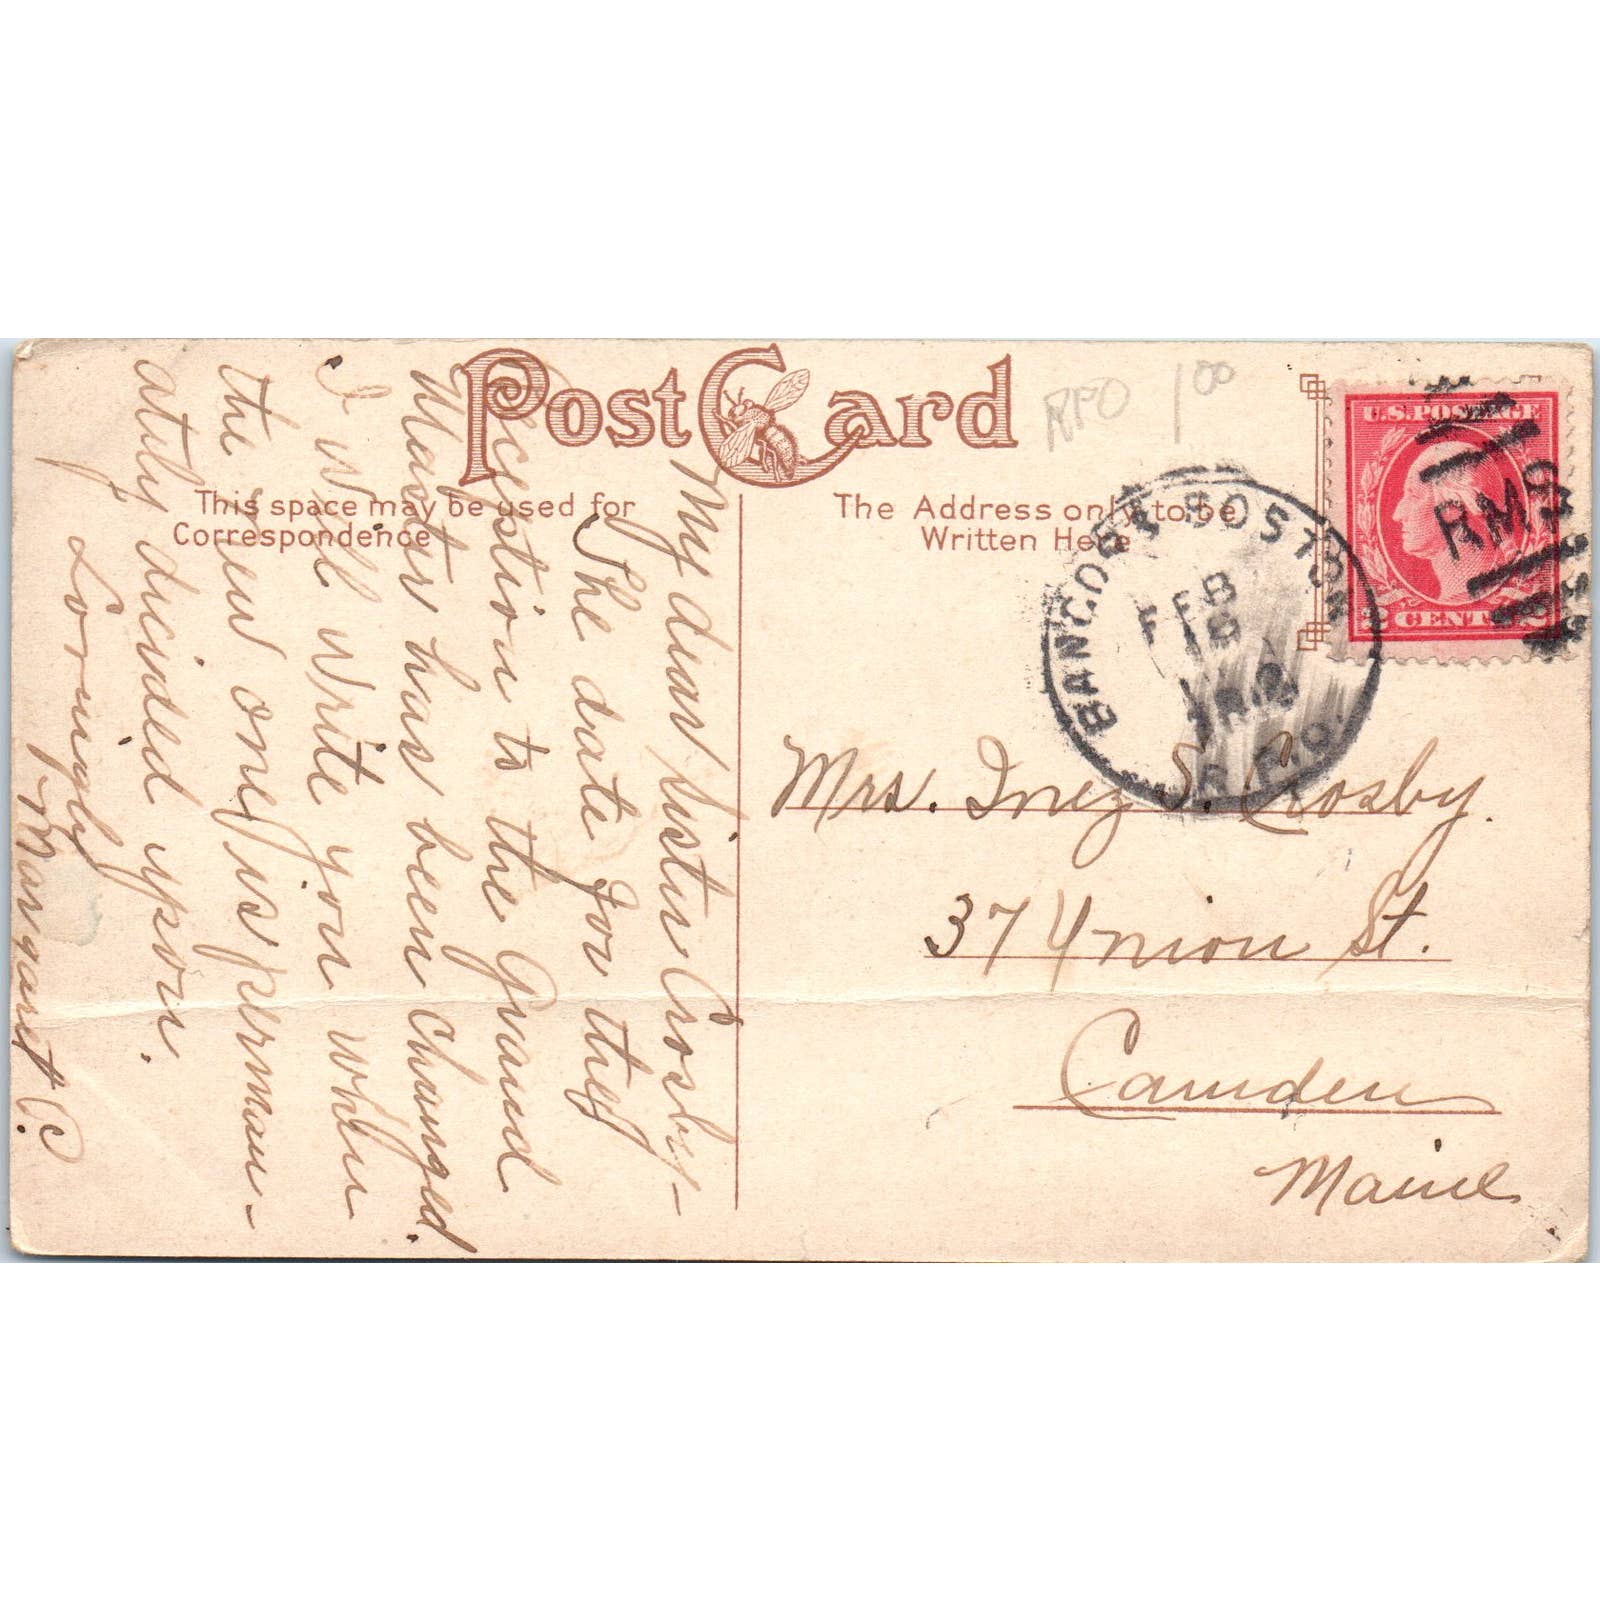 Post Card
This space may be used for
Correspondence
The Address only to be
Written Here
RPO 1 00
U.S. POSTAGE
2 CENTS 2
BANGOR & BOSTON
FEB
R.P.O.
RMS
Mrs. Inez S. Crosby.
37 Union St.
Camden
Maine
My dear Sister Crosby—
The date for the
reception to the Grand
Master has been changed.
I will write you when
the new one is perman-
ately dicided upon.
Lovingly
Margaret C.